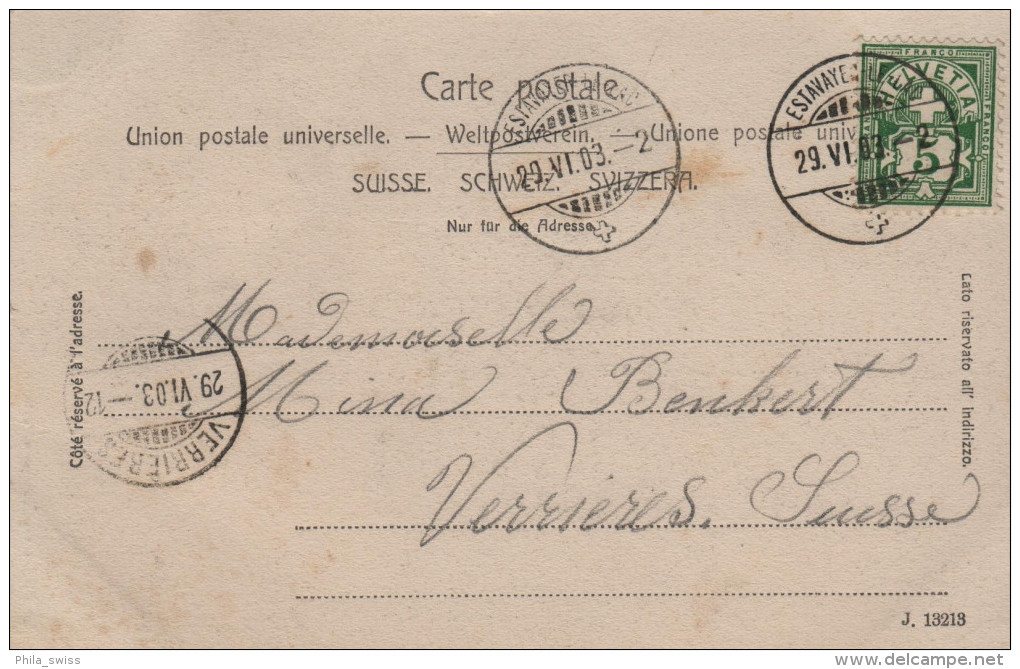 Carte postale
Union postale universelle. — Weltpostverein. — Unione postale univ
SUISSE. SCHWEIZ. SVIZZERA.
Nur für die Adresse
ESTAVAYER
29.VI.03.–2
ESTAVAYER
29.VI.03.–2
FRANCO
HELVETIA
FRANCO
5
Côté réservé à l'adresse.
Lato riservato all' indirizzo.
Mademoiselle
Mina Benkert
Verrieres. Suisse
29.VI.03.–12
VERRIERES
J. 13213
Phila_swiss
delcampe.net